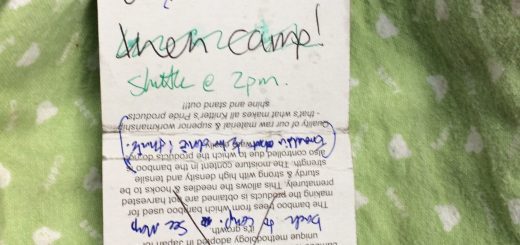 then camp!
shuttle @ 2pm.
back to camp. See Map
unique methodology adopted in Japan for
it's growth.
The bamboo trees from which bamboo used for
making the product is obtained are not harvested
prematurely. This allows the needles & hooks to be
sturdy & strong with high density and tensile
strength. The moisture content in the bamboo is
also controlled due to which the products do
Quality of our raw material & superior workmanship
- that's what makes all Knitter's Pride products
shine and stand out!!